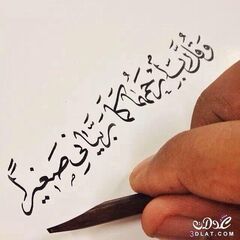 وَقُل رَّبِّ ارْحَمْهُمَا كَمَا رَبَّيَانِي صَغِيرًا
3DLAT.COM